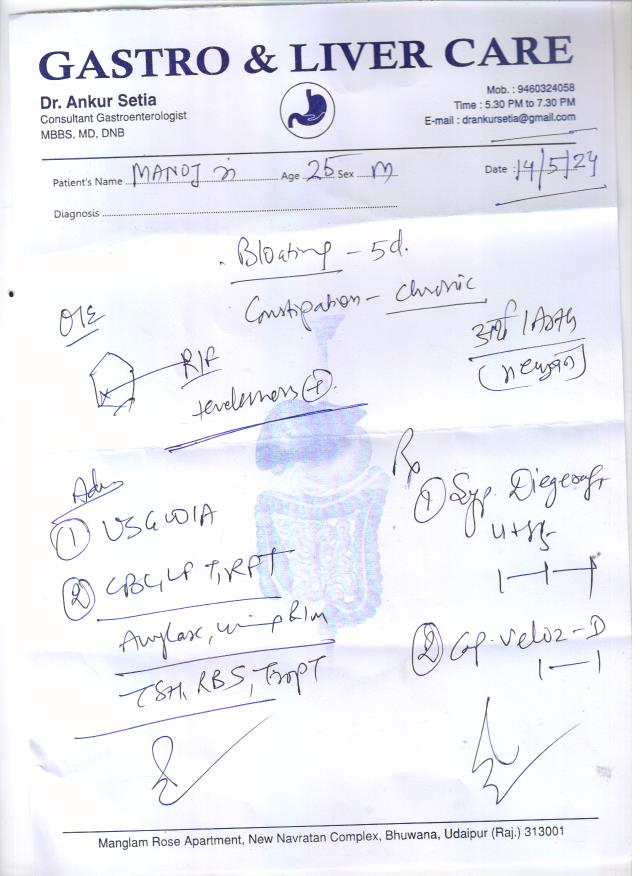 GASTRO & LIVER CARE
Dr. Ankur Setia
Consultant Gastroenterologist
MBBS, MD, DNB
Mob. : 9460324058
Time : 5.30 PM to 7.30 PM
E-mail : drankursetia@gmail.com
Patient's Name MANOJ Age 25 Sex M Date : 14/5/24
Diagnosis
Bloating - 5d.
Constipation - chronic
O/E
RIF
tenderness (+)
Adv
① USG W/A
② CBC, LFT, RFT
Amylase,
TSH, RBS, TropT
Rx
① Syp.
1-1-1
② Cap. Veloz-D
1-1
Manglam Rose Apartment, New Navratan Complex, Bhuwana, Udaipur (Raj.) 313001